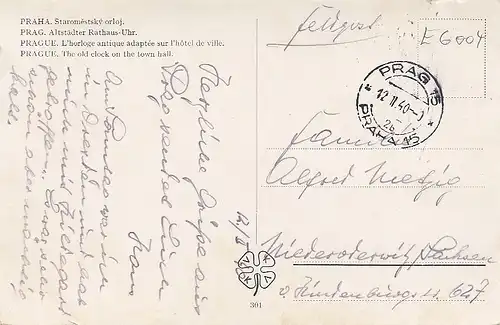 PRAHA. Staroměstský orloj.
PRAG. Altstädter Rathaus-Uhr.
PRAGUE. L'horloge antique adaptée sur l'hôtel de ville.
PRAGUE. The old clock on the town hall.
Feldpost
E 6004
PRAG 15
12.II.40
2b
PRAHA 15
Herzliche Grüße aus
Prag sendet Euch
Hans
Am Sonntag war ich
in Dresden und
mich mit
getroffen. Es war sehr
schön aber
kalt.
12/II
Familie
Alfred
Niederoderwitz, Sachsen
v. Hindenburgstr. 627
301